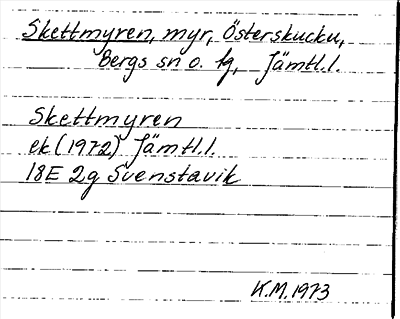 Skettmyren, myr, Österskucku,
Bergs sn o. tg, Jämtl.l.
Skettmyren
ek (1972) Jämtl.l.
18E 2g Svenstavik
K.M. 1973